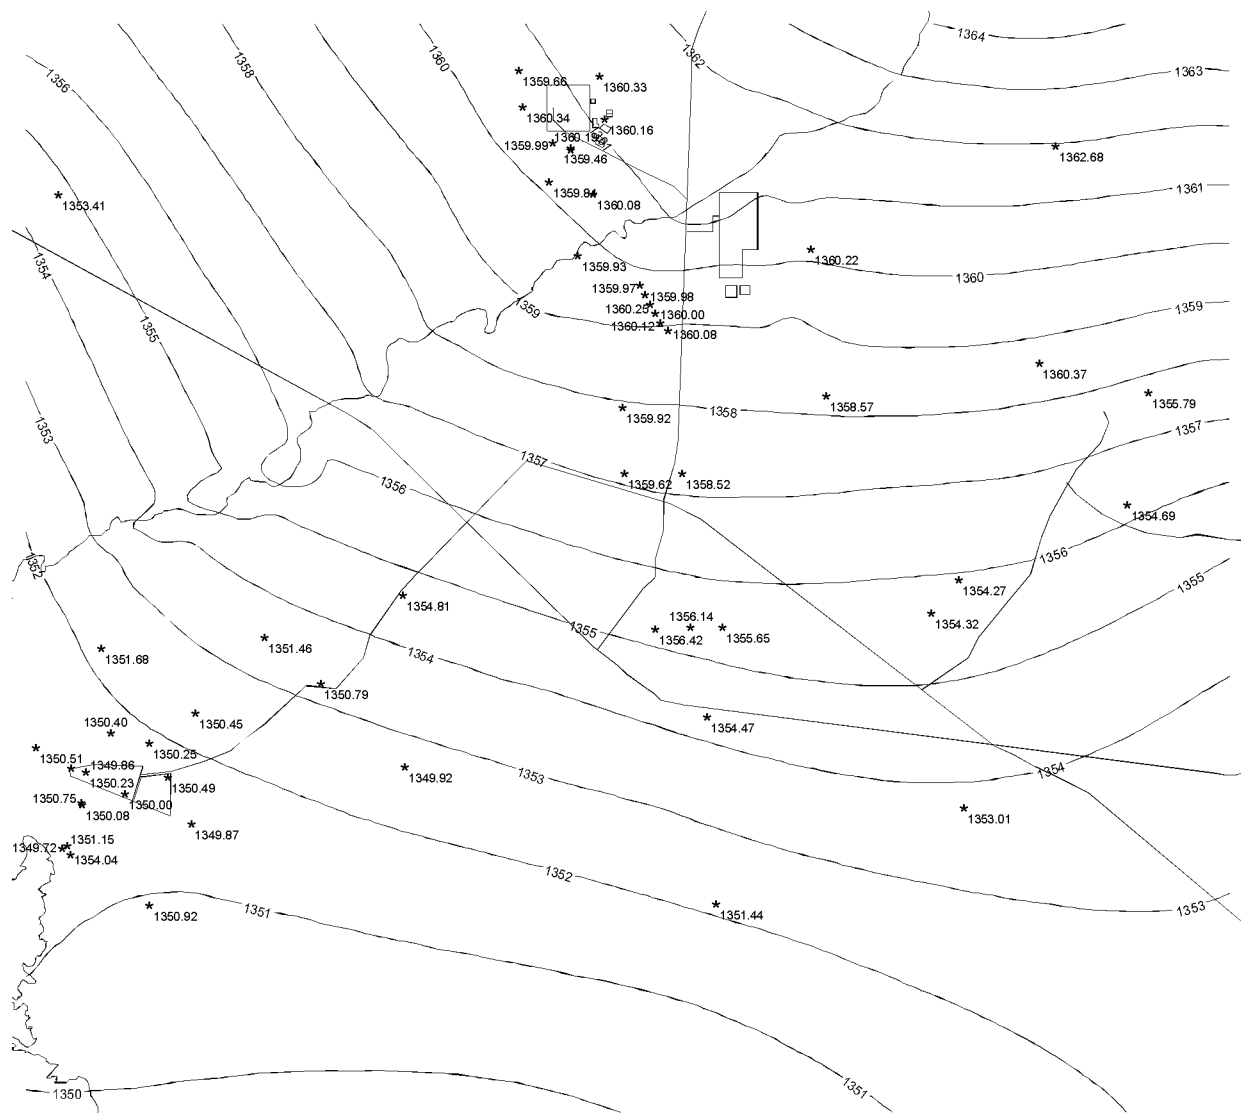 1364
1362
1363
1360
1358
1356
1359.66
1360.33
1360.34
1360.16
1359.99
1359.46
1362.68
1361
1353.41
1359.84
1360.08
1354
1359.93
1360.22
1360
1359.97
1359.98
1359
1360.25
1360.00
1359
1360.12
1360.08
1355
1360.37
1358.57
1355.79
1359.92
1358
1353
1357
1357
1359.62
1358.52
1356
1354.69
1356
1352
1354.27
1355
1354.81
1354.32
1356.14
1355
1356.42
1355.65
1351.46
1354
1351.68
1350.79
1350.45
1354.47
1350.40
1350.25
1350.51
1349.86
1350.23
1350.49
1349.92
1353
1354
1350.75
1350.00
1350.08
1353.01
1349.87
1351.15
1349.72
1354.04
1352
1350.92
1351
1351.44
1353
1350
1351